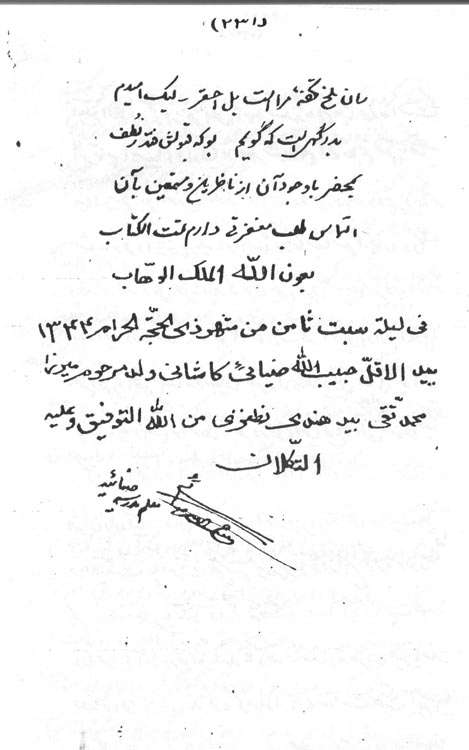 (۲۳۱)
سان ملخ تحفهٔ مراست بل احقر لیک امیدم
بدرگهی است که گویم بو که قبولش فتد ز لطف
بمحضر با وجود آن از ناظرین و مستمعین با آن
التماس طلب مغفرتی دارم تمت الکتاب
بعون الله الملک الوهاب
فی لیلة سبت ثامن من شهر ذی الحجة الحرام ۱۳۴۴
بید الاقل حبیب الله ضیائی کاشانی ولد مرحوم میرزا
محمد تقی بید هندی نطنزی من الله التوفیق و علیه
التکلان
ضیائیه
معلم مدرسه